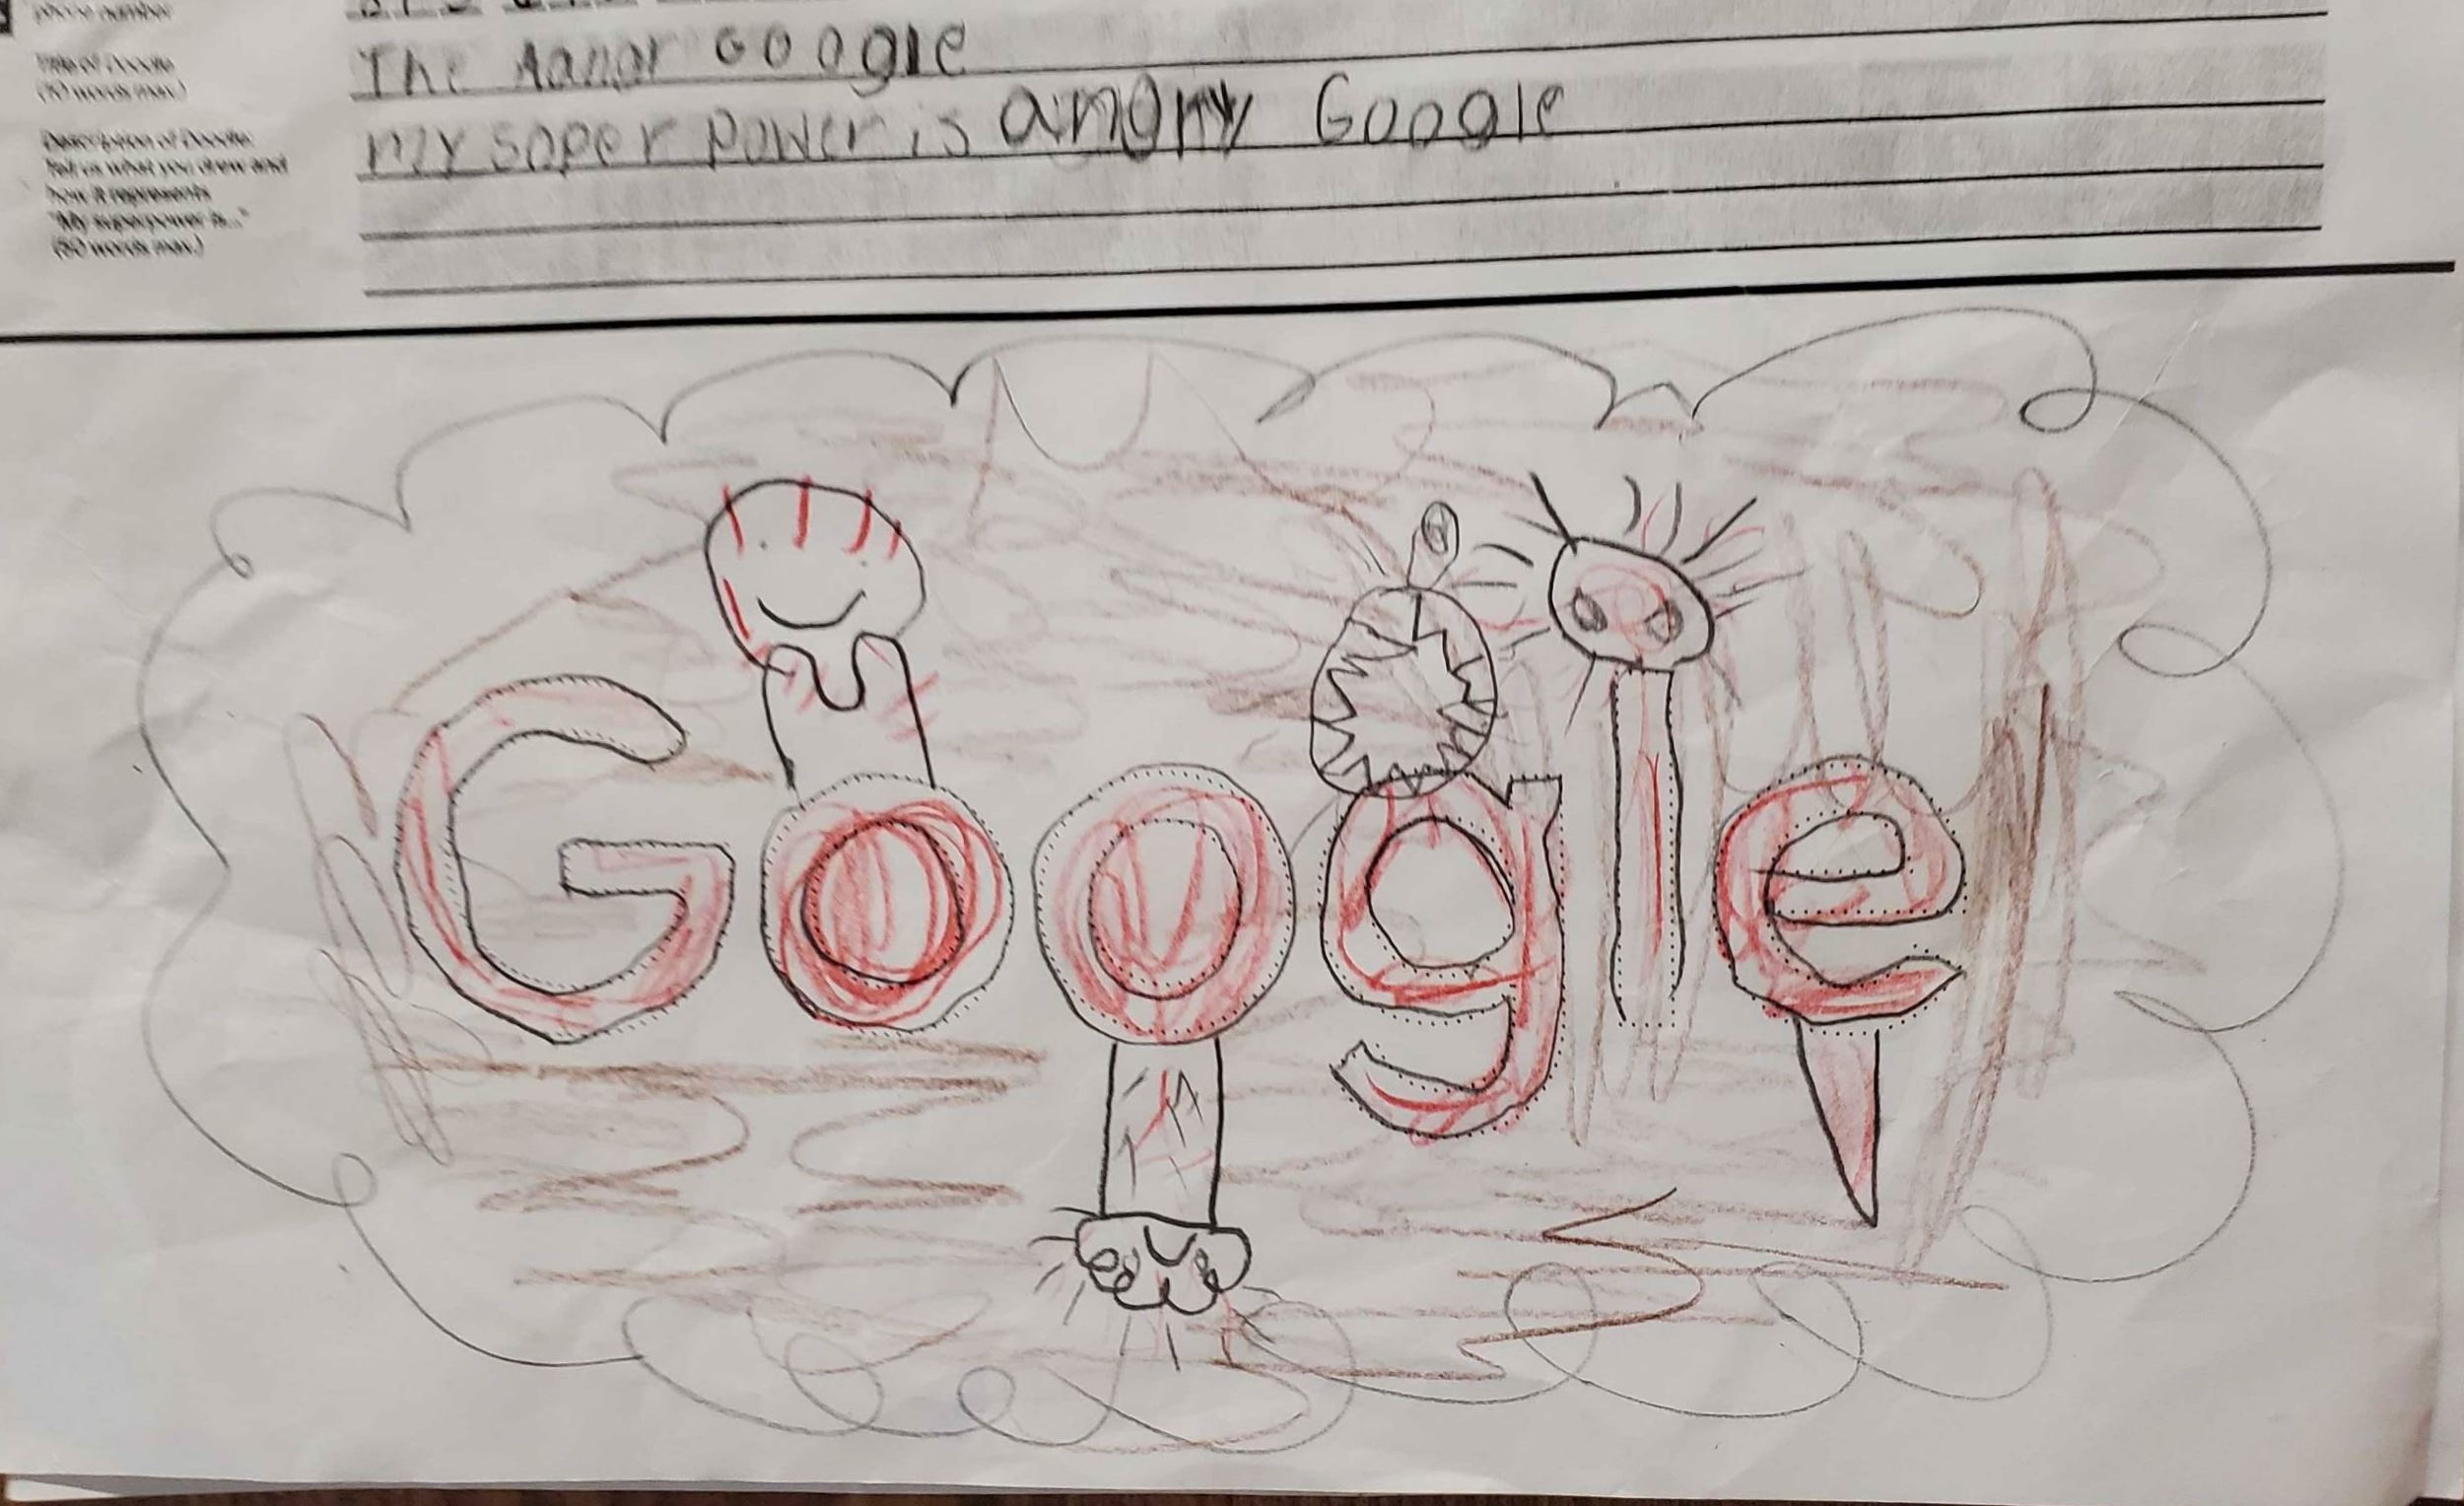 phone number
Title of Doodle
(10 words max.)
The Aangr Google
Description of Doodle:
Tell us what you drew and
how it represents
"My superpower is..."
(50 words max.)
my soper power is angry Google
Google